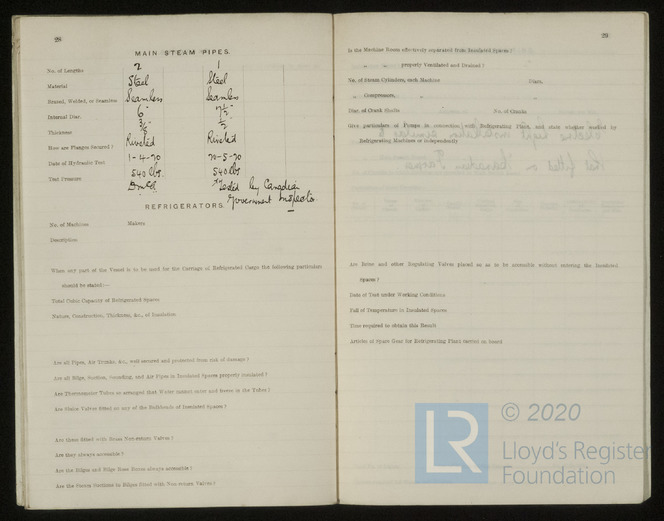 28
MAIN STEAM PIPES.
No. of Lengths 2 1
Material Steel Steel
Brazed, Welded, or Seamless Seamless Seamless
Internal Diar. 6" 7½"
Thickness
How are Flanges Secured? Riveted Riveted
Date of Hydraulic Test 1-4-20 20-5-20
Test Pressure 540 lbs. 540 lbs.
Tested by Canadian
Government Inspector.
REFRIGERATORS.
No. of Machines Makers
Description
When any part of the Vessel is to be used for the Carriage of Refrigerated Cargo the following particulars
should be stated:—
Total Cubic Capacity of Refrigerated Spaces
Nature, Construction, Thickness, &c., of Insulation
Are all Pipes, Air Trunks, &c., well secured and protected from risk of damage?
Are all Bilge, Suction, Sounding, and Air Pipes in Insulated Spaces properly insulated?
Are Thermometer Tubes so arranged that Water cannot enter and freeze in the Tubes?
Are Sluice Valves fitted on any of the Bulkheads of Insulated Spaces?
Are these fitted with Brass Non-return Valves?
Are they always accessible?
Are the Bilges and Bilge Rose Boxes always accessible?
Are the Steam Suctions to Bilges fitted with Non-return Valves?
29
Is the Machine Room effectively separated from Insulated Spaces?
" " " properly Ventilated and Drained?
No. of Steam Cylinders, each Machine Diars.
" Compressors, "
Diar. of Crank Shafts No. of Cranks
Give particulars of Pumps in connection with Refrigerating Plant, and state whether worked by
Refrigerating Machines or independently
Are Brine and other Regulating Valves placed so as to be accessible without entering the Insulated
Spaces?
Date of Test under Working Conditions
Fall of Temperature in Insulated Spaces
Time required to obtain this Result
Articles of Spare Gear for Refrigerating Plant carried on board
LR
© 2020
Lloyd's Register
Foundation